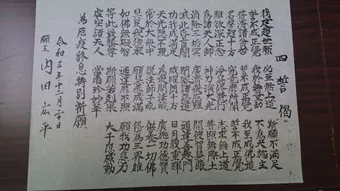 四誓偈
我建超世願 必至無上道 斯願不満足
誓不成正覚 我於無量劫 不為大施主
普済諸貧苦 誓不成正覚 我至成佛道
名聲超十方 究竟靡所聞 誓不成正覚
離欲深正念 浄慧修梵行 志求無上道
為諸天人師 神力演大光 普照無際土
消除三垢冥 廣濟衆厄難 開彼智慧眼
滅此昏盲闇 閉塞諸惡道 通達善趣門
功祚成満足 威曜朗十方 日月戢重暉
天光隠不現 為衆開法蔵 廣施功徳寶
常於大衆中 説法師子吼 供養一切佛
具足衆徳本 願慧悉成満 得為三界雄
如佛無礙智 通達靡不照 願我功慧力
等此最勝尊 斯願若剋果 大千應感動
虚空諸天人 當雨珍妙華
為厄疫終息特別祈願
令和三年十二月二十日
願主 内田宏平